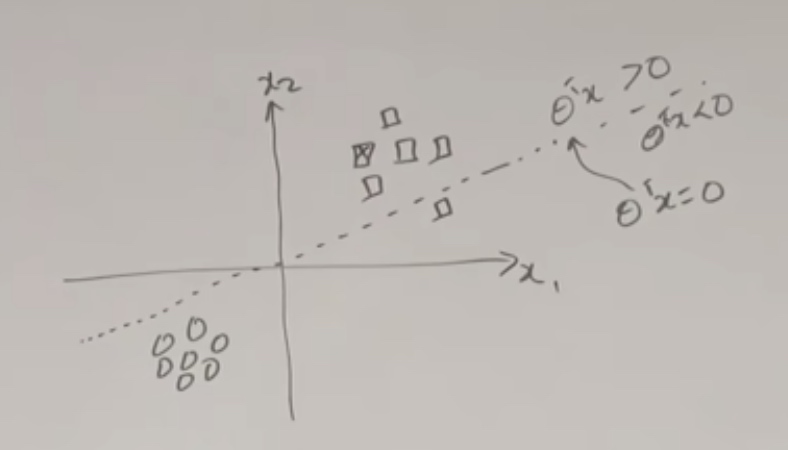 x₂
θᵀx >0
θᵀx<0
θᵀx=0
x₁